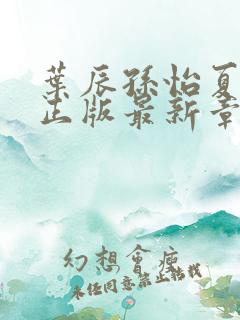 葉辰孫怡夏
正版最新章
幻想會庫
未經同意禁止轉載